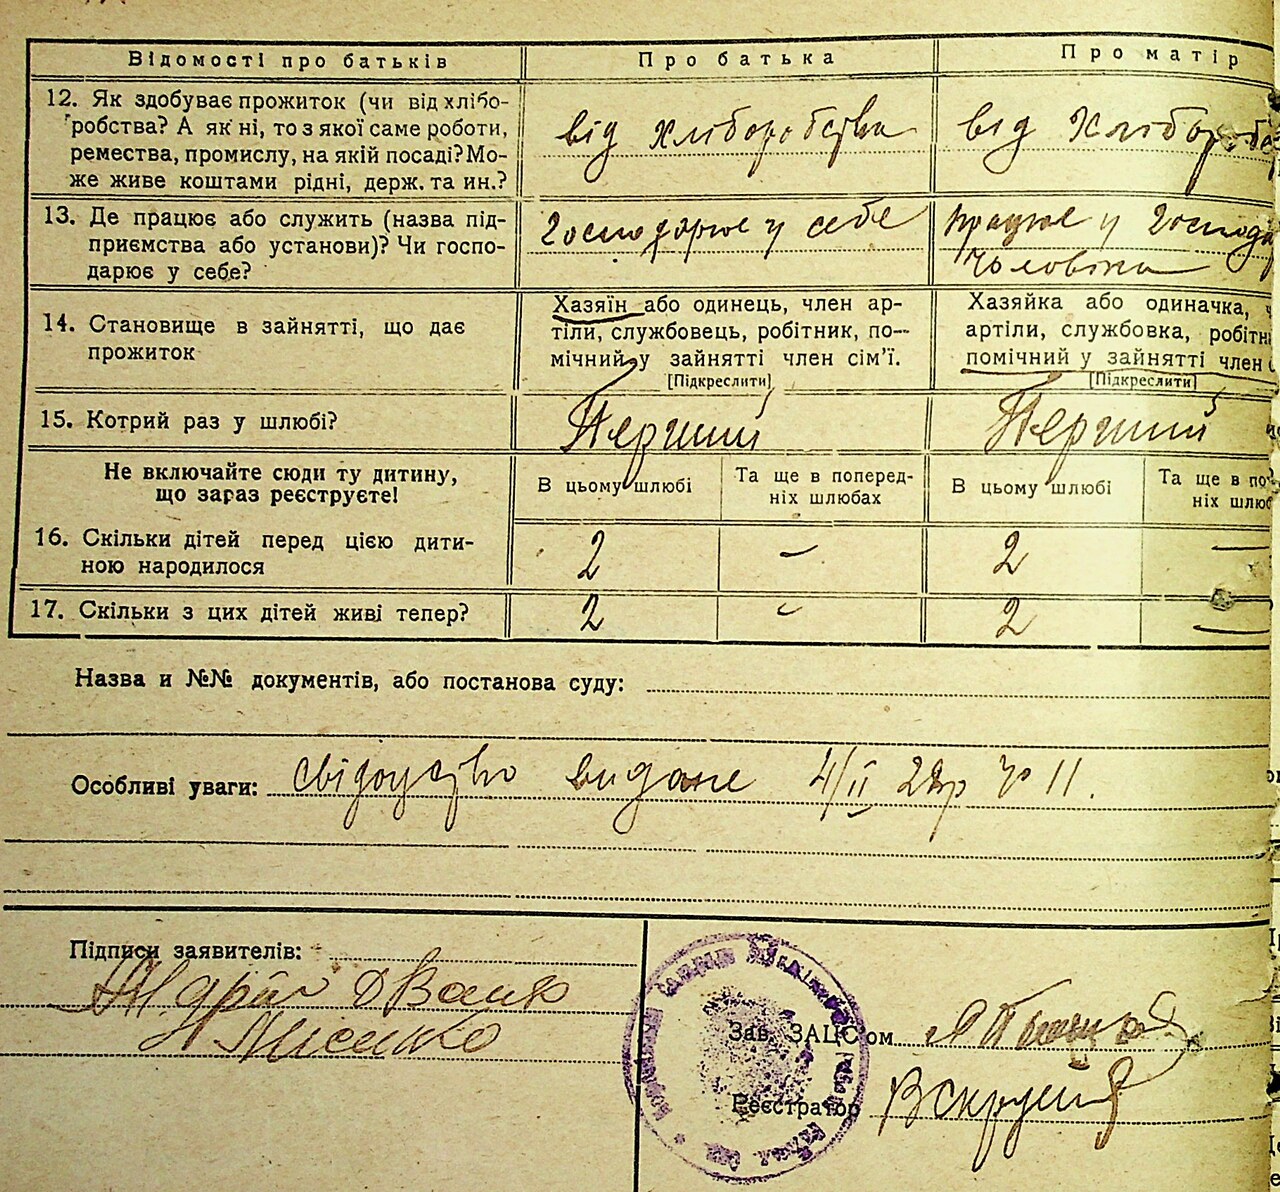 Відомості про батьків
Про батька
Про матір
12. Як здобуває прожиток (чи від хлібо-
робства? А як ні, то з якої саме роботи,
ремества, промислу, на якій посаді? Мо-
же живе коштами рідні, держ. та ин.?
від хліборобства
від хлібороб
13. Де працює або служить (назва під-
приємства або установи)? Чи госпо-
дарює у себе?
Господарює у себе
працює у господ
чоловіка
14. Становище в зайнятті, що дає
прожиток
Хазяїн або одинець, член ар-
тіли, службовець, робітник, по-
мічний у зайнятті член сім'ї.
[Підкреслити]
Хазяйка або одиначка,
артіли, службовка, робітн
помічний у зайнятті член
[Підкреслити]
15. Котрий раз у шлюбі?
Перший
Перший
Не включайте сюди ту дитину,
що зараз реєструєте!
В цьому шлюбі
Та ще в поперед-
ніх шлюбах
В цьому шлюбі
Та ще в по
ніх шлюб
16. Скільки дітей перед цією дити-
ною народилося
2
–
2
–
17. Скільки з цих дітей живі тепер?
2
–
2
–
Назва и №№ документів, або постанова суду:
Особливі уваги: свідоцтво видане 4/II 28р № 11.
Підписи заявителів:
Андрій
Лисенко
Зав. ЗАЦС'ом
Реєстратор